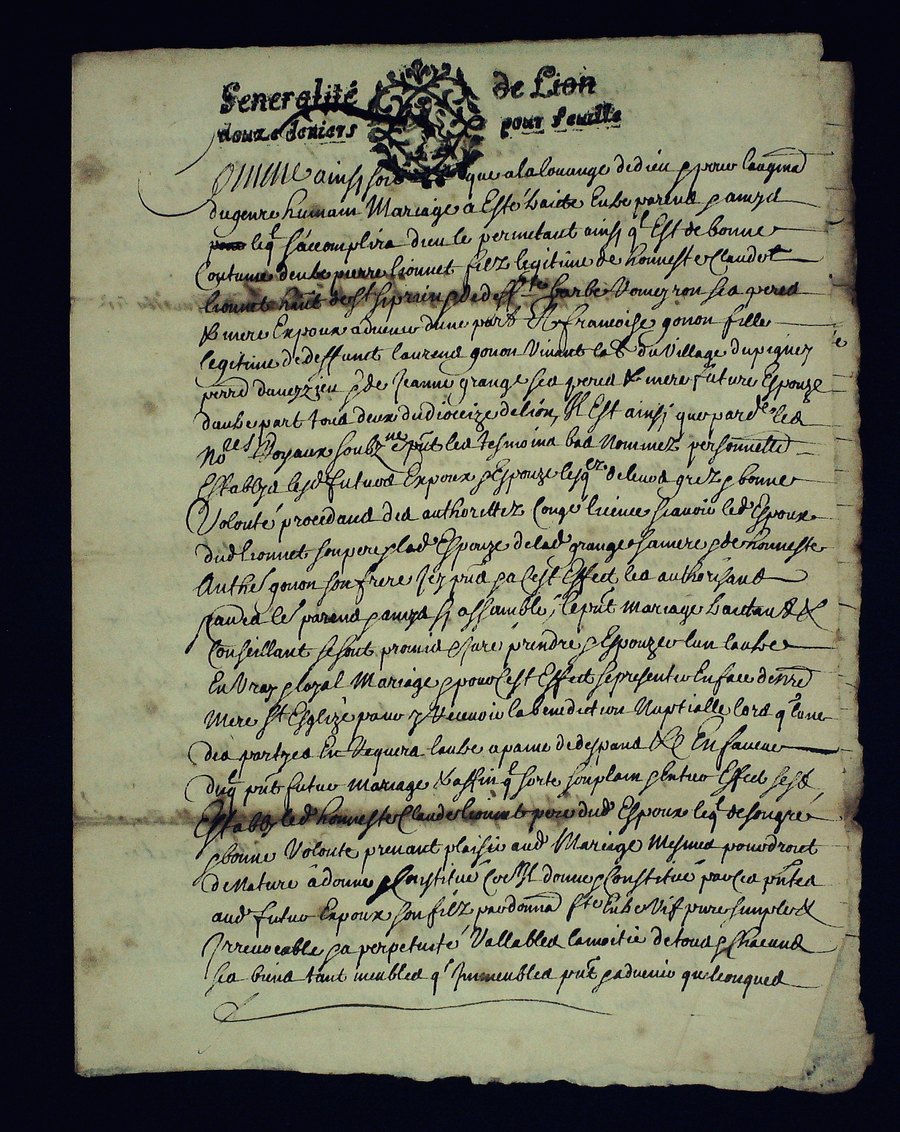 Generalité de Lion
douze deniers pour feuille
Comme ainsy soit que a la louange de dieu & pour laugmã
du genre humain Mariage a Esté traicté Entre parens & amys
leql saccomplira dieu le permetant ainsy ql Est de bonne
Coutume dentre pierre Lionnet filz legitime de honneste Claude
Lionnet hãnt de St & de deffte barbe Vomeyron ses pere
& mere Expoux advenir dune part Et francoise gonon fille
legitime de deffunct laurend gonon Vivant du Village du pigney
& de Jeanne grange ses pere & mere future Espouze
dautre part tous deux du dioceize de lion, Il Est ainsy que par devt les
Nores Royaux soubznes & pñt les tesmoins bas Nommez personnelle
Establys lesd futurs Expoux & Espouze lesqlz de leurs grez & bonne
Volonté procedans des authorittez Conge licence scavoir led Espoux
dud Lionnet son pere & lad Espouze de lad grange sa mere & de honneste
Anthe gonon son frere Icy pñs & a cest Effect les authorisans
par les parens & amys sy assemblé, le pñt Mariage traictans &
Conseillant se sont promis & Juré prindre & Espouzer lun lautre
En Vray & loyal Mariage & pour cest Effect se presenter En face de nrẽ
Mere St Esglize pour y Recevoir la benediction Nuptialle lors ql une
des partyes En Requera lautre a paine de despens & En faveur
duql pñt futur Mariage & affin ql sorte son plain & Entier Effect sest
Estably led honneste Claude Lionnet pere dud Espoux leql de son gré
& bonne Volonté prenant plaisir aud Mariage Mesmes pour droict
de Nature a donné & Constitué donne & Constitue par ces pñtes
aud futur Expoux son filz par donnaõn fte Entre Vif pure simple &
Irrevocable & a perpetuité Vallables la moitie de tous & chacuns
ses biens tant meubles ql Immeubles pñt & advenir quelconques